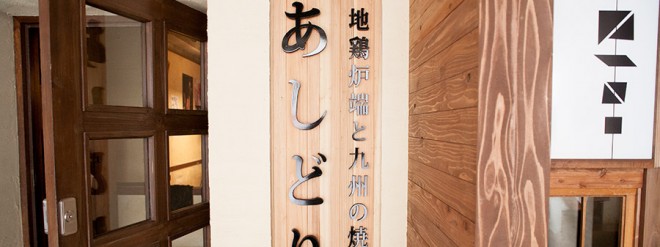 地鶏炉端と九州の焼
あしどり